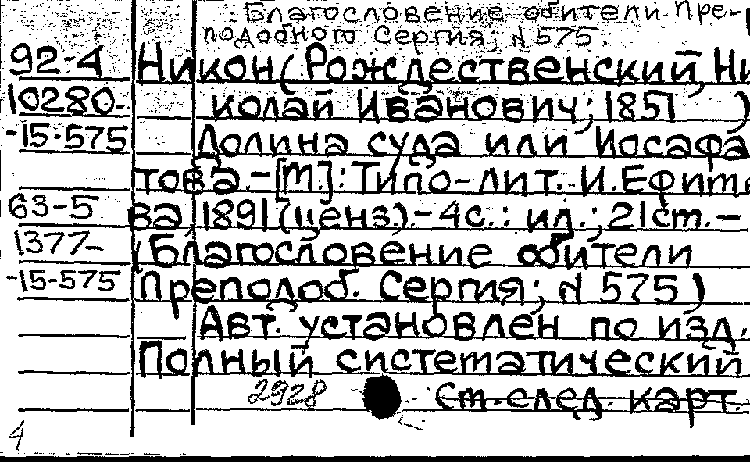 Благословение обители Пре-
подобного Сергия; N 575.
92-4 Никон (Рождественский, Ни
10280- колай Иванович; 1851 )
-15-575 Долина суда или Иосафа
това.-[М.]: Типо-лит. И.Ефимо
63-5 ва, 1891 (ценз).-4с.: ил.; 21см.-
1377- (Благословение обители
-15-575 Преподоб. Сергия; N 575)
Авт. установлен по изд.
Полный систематический
2928 См. след. карт.
4